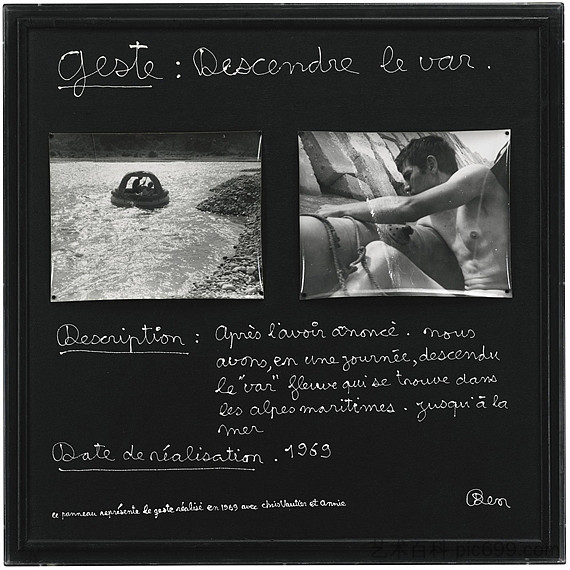 geste : Descendre le var .
Description : Après l'avoir anoncé . nous
avons, en une journée, descendu
le "var" fleuve qui se trouve dans
les alpes maritimes . jusqu'à la
mer
Date de réalisation . 1969
ce panneau représente le geste réalisé en 1969 avec chris Vautier et Annie
Ben
艺术百科 pic699.com